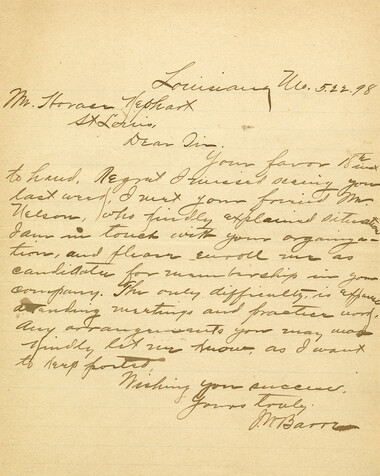 Louisiana Mo. 5.22.98
Mr. Horace Kephart
St Louis,
Dear Sir.
Your favor inst
to hand. Regret I missed seeing you
last week, I met your friend Mr.
Nelson, who kindly explained situation
I am in touch with your organiza-
tion, and please enroll me as
candidate for membership in your
company. The only difficulty, is expense
attending meetings and practice work.
Any arrangements you may make
kindly let me know, as I want
to keep posted.
Wishing you success.
Yours truly.